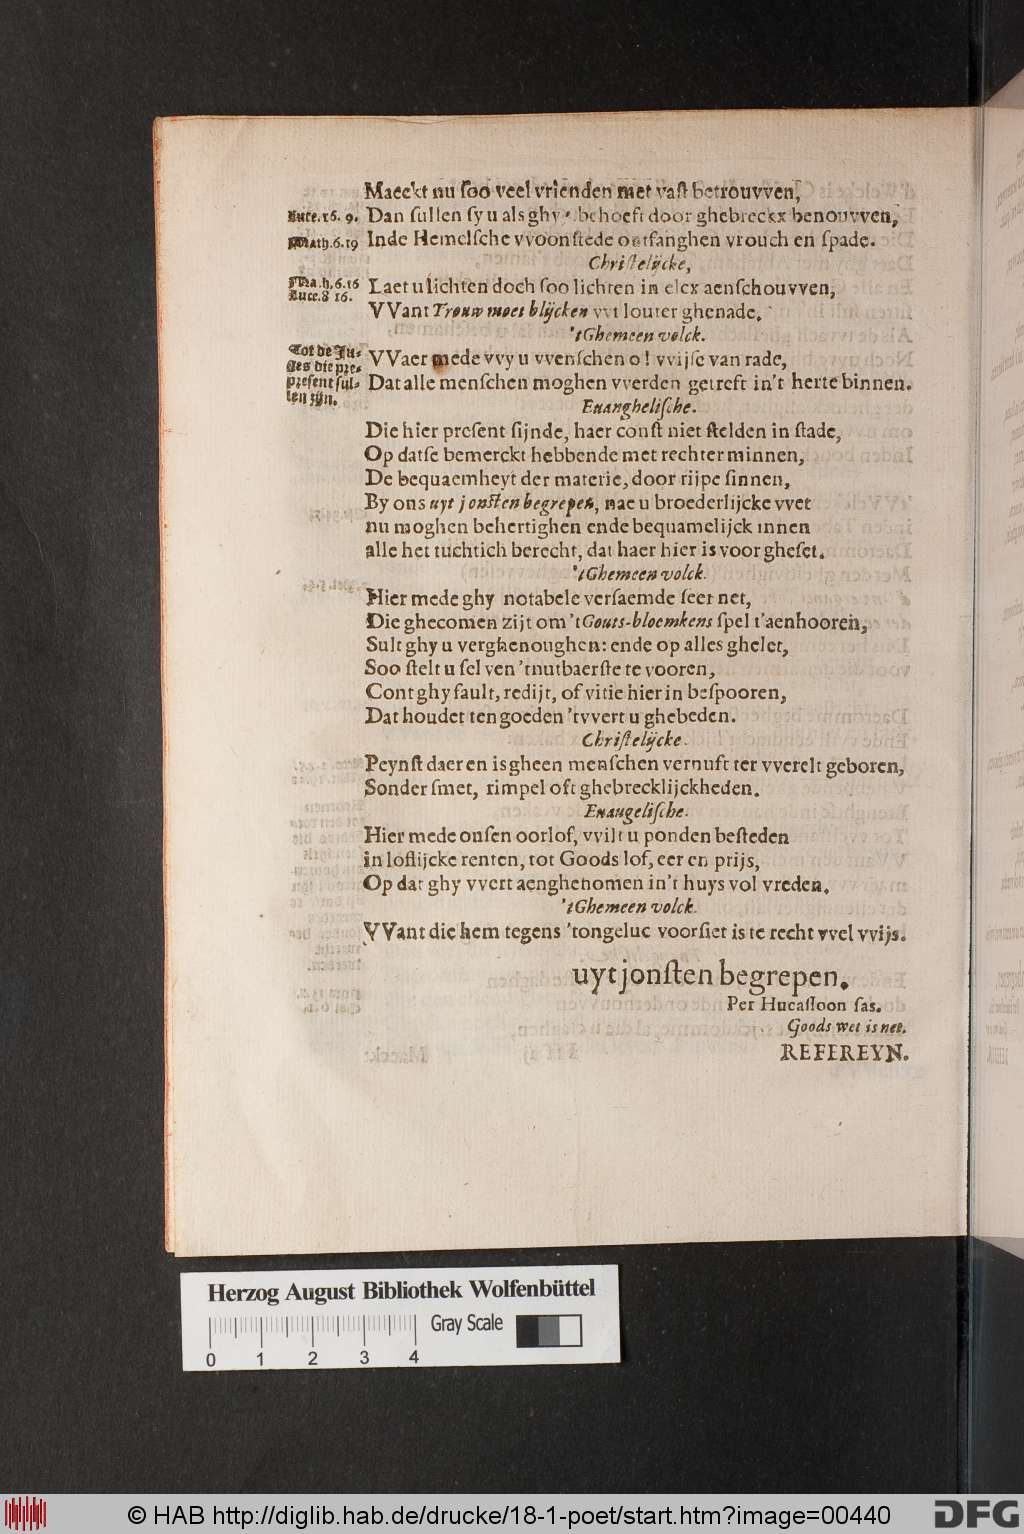 Maeckt nu ſoo veel vrienden met vaſt betrouvven,
Luce.16. 9. Dan ſullen ſy u als ghy behoeft door ghebreckx benouvven,
Math.6.19 Inde Hemelſche vvoonſtede ontfanghen vrouch en ſpade.
Chriſtelijcke,
Mat.h.6.16 Laet u lichten doch ſoo lichten in elcx aenſchouvven,
Luce.8 16. VVant Trouw moet blijcken vvt louter ghenade.
'tGhemeen volck.
Tot de Ju-
ges die pre-
preſent ſul-
len zijn.
VVaer mede vvy u vvenſchen o! vvijſe van rade,
Dat alle menſchen moghen vverden getreft in't herte binnen.
Euanghelische.
Die hier preſent ſijnde, haer conſt niet ſtelden in ſtade,
Op datſe bemerckt hebbende met rechter minnen,
De bequaemheyt der materie, door rijpe ſinnen,
By ons uyt jonſten begrepen, nae u broederlijcke vvet
nu moghen behertighen ende bequamelijck innen
alle het tuchtich berecht, dat haer hier is voor gheſet.
'tGhemeen volck.
Hier mede ghy notabele verſaemde ſeer net,
Die ghecomen zijt om 'tGouts-bloemkens ſpel t'aenhooren,
Sult ghy u verghenoughen: ende op alles ghelet,
Soo ſtelt u ſel ven 'tnutbaerſte te vooren,
Cont ghy fault, redijt, of vitie hier in beſpooren,
Dat houdet ten goeden 'tvvert u ghebeden.
Chriſtelijcke.
Peynſt daer en is gheen menſchen vernuft ter vverelt geboren,
Sonder ſmet, rimpel oft ghebrecklijckheden.
Euaugeliſche.
Hier mede onſen oorlof, vvilt u ponden beſteden
in loflijcke renten, tot Goods lof, eer en prijs,
Op dat ghy vvert aenghenomen in't huys vol vreden.
'tGhemeen volck.
VVant die hem tegens 'tongeluc voorſiet is te recht vvel vvijs.
uyt jonſten begrepen.
Per Hucaſloon ſas.
Goods wet is net.
REFEREYN.
Herzog August Bibliothek Wolfenbüttel
Gray Scale
0 1 2 3 4
© HAB http://diglib.hab.de/drucke/18-1-poet/start.htm?image=00440
DFG